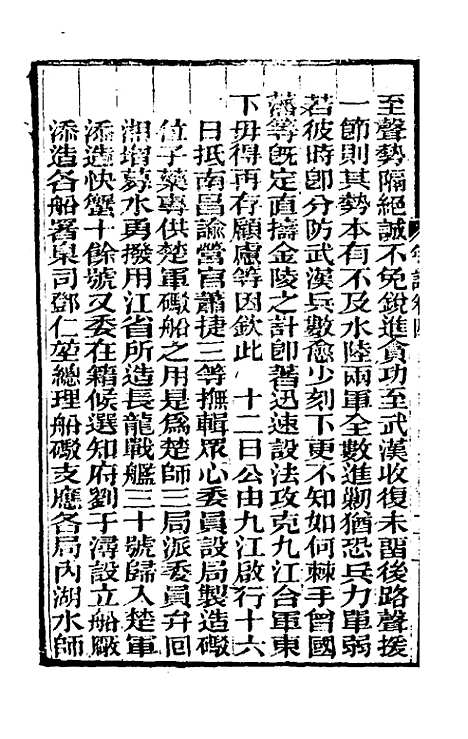 至聲勢隔絕誠不免銳進貪功至武漢收復未畱後路聲援
一節則其勢本有不及水陸兩軍全數進勦猶恐兵力單弱
若彼時卽分防武漢兵數愈少刻下更不知如何棘手曾國
藩等旣定直擣金陵之計卽著迅速設法攻克九江合軍東
下毋得再存顧慮等因欽此　十二日公由九江啟行十六
日抵南昌諭營官蕭捷三等撫輯眾心委員設局製造礮
位子藥專供楚軍礮船之用是爲楚師三局派委員弁回
湖增募水勇撥用江省所造長龍戰艦三十號歸入楚軍
添造快蟹十餘號又委在籍候選知府劉于潯設立船厰
添造各船署臬司鄧仁堃總理船礮支應各局內湖水師
年譜卷四